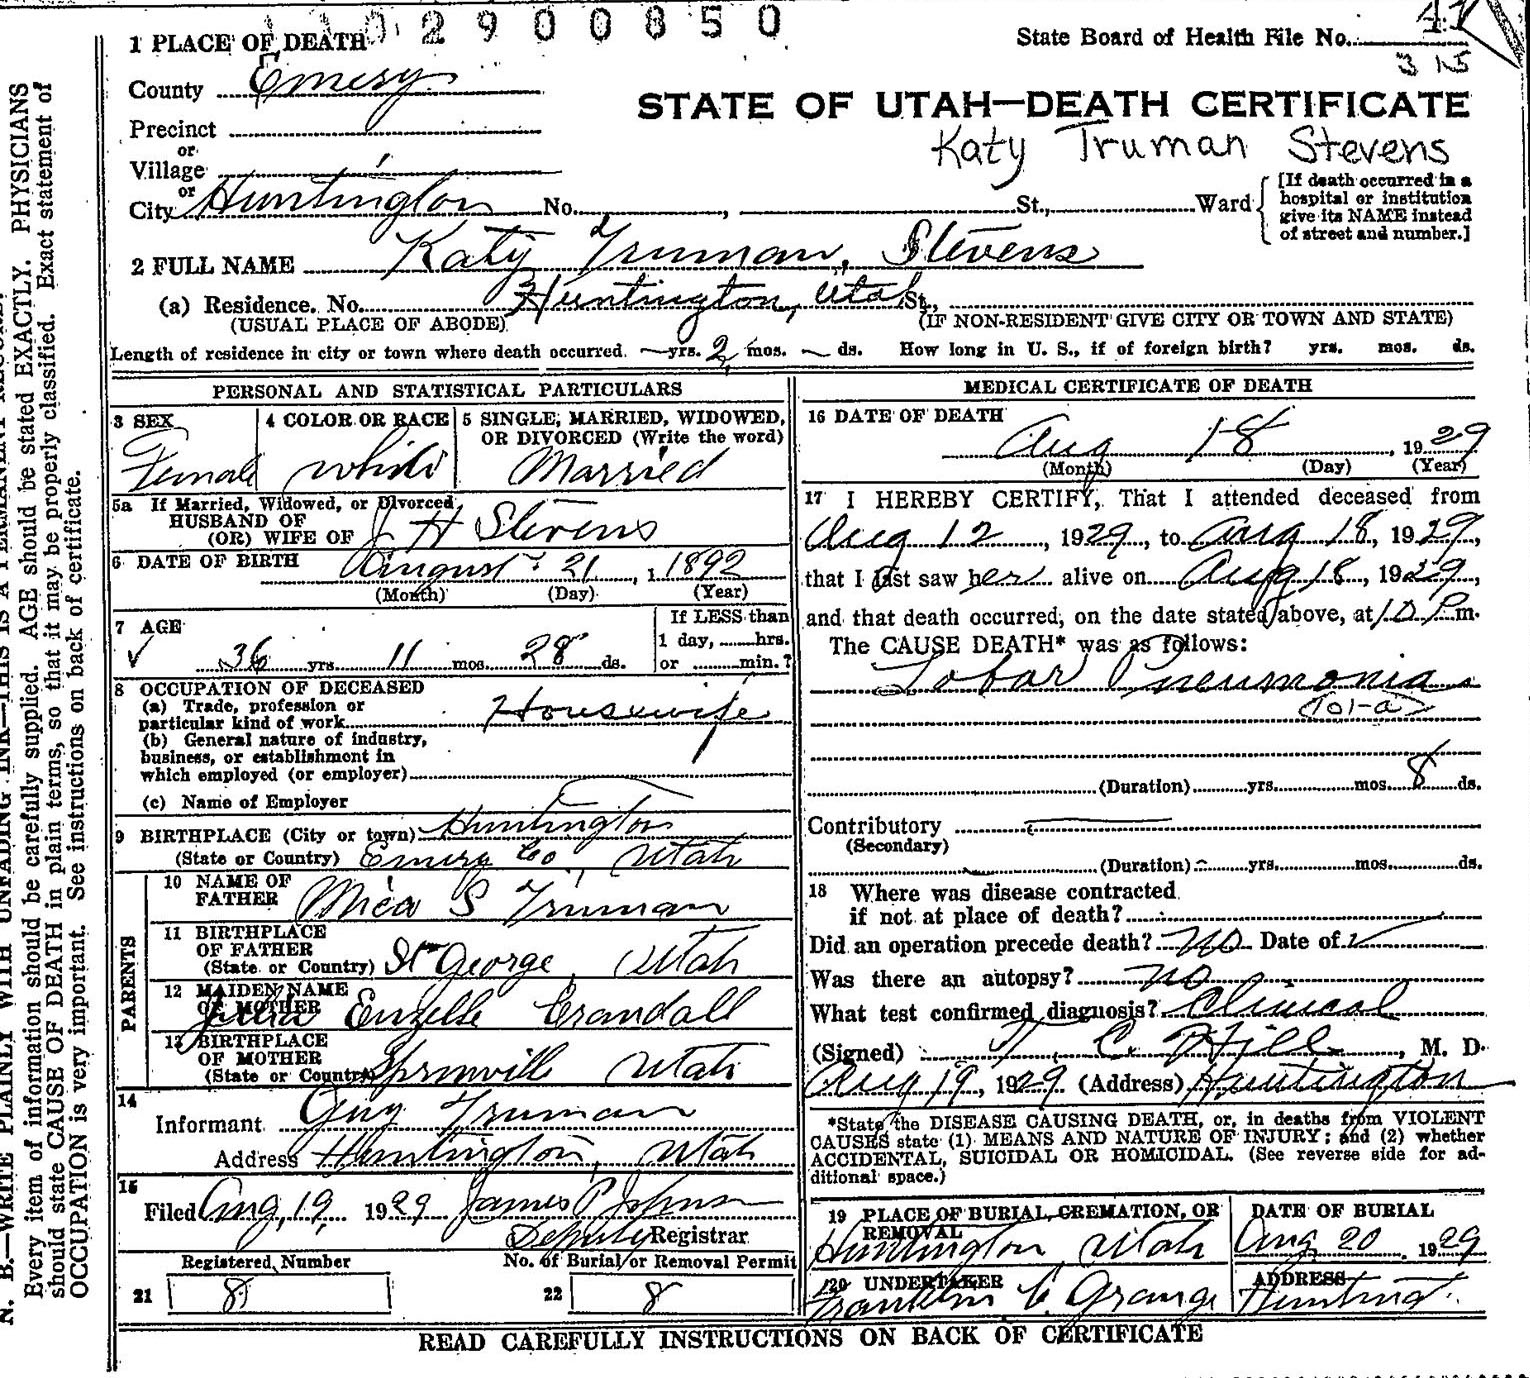 02900850
1 PLACE OF DEATH
State Board of Health File No. 41
315
County Emery
STATE OF UTAH—DEATH CERTIFICATE
Precinct
Katy Truman Stevens
or
Village
or
City Huntington No. , St., Ward
[If death occurred in a
hospital or institution
give its NAME instead
of street and number.]
2 FULL NAME Katy Truman, Stevens
(a) Residence. No. Huntington, Utah St.,
(USUAL PLACE OF ABODE) (IF NON-RESIDENT GIVE CITY OR TOWN AND STATE)
Length of residence in city or town where death occurred. — yrs. 2 mos. — ds. How long in U. S., if of foreign birth? yrs. mos. ds.
PERSONAL AND STATISTICAL PARTICULARS
3 SEX
Female
4 COLOR OR RACE
White
5 SINGLE, MARRIED, WIDOWED,
OR DIVORCED (Write the word)
Married
5a If Married, Widowed, or Divorced
HUSBAND OF
(OR) WIFE OF J H Stevens
6 DATE OF BIRTH August 21, 1 1892
(Month) (Day) (Year)
7 AGE
✓ 36 yrs 11 mos. 28 ds.
If LESS than
1 day, hrs.
or min.?
8 OCCUPATION OF DECEASED
(a) Trade, profession or
particular kind of work Housewife
(b) General nature of industry,
business, or establishment in
which employed (or employer)
(c) Name of Employer
9 BIRTHPLACE (City or town) Huntington
(State or Country) Emery Co, Utah
PARENTS
10 NAME OF
FATHER Mica S Truman
11 BIRTHPLACE
OF FATHER
(State or Country) St George, Utah
12 MAIDEN NAME
OF MOTHER Julia Enzelle Crandall
13 BIRTHPLACE
OF MOTHER
(State or Country) Sprinville Utah
14
Informant Guy Truman
Address Huntington, Utah
15
Filed Aug, 19 1929 James P Johnson
Deputy Registrar
Registered Number No. of Burial or Removal Permit
21 8 22 8
MEDICAL CERTIFICATE OF DEATH
16 DATE OF DEATH
Aug 18, 1929
(Month) (Day) (Year)
17 I HEREBY CERTIFY, That I attended deceased from
Aug 12, 1929, to Aug 18, 1929,
that I last saw her alive on Aug 18, 1929,
and that death occurred, on the date stated above, at 10 P m.
The CAUSE DEATH* was as follows:
Lobar Pneumonia
101-a
(Duration) yrs. mos. 8 ds.
Contributory
(Secondary)
(Duration) yrs. mos. ds.
18 Where was disease contracted
if not at place of death?
Did an operation precede death? No Date of ✓
Was there an autopsy? no
What test confirmed diagnosis? Clinical
(Signed) T. C. Hill, M. D.
Aug 19, 1929 (Address) Huntington
*State the DISEASE CAUSING DEATH, or, in deaths from VIOLENT
CAUSES state (1) MEANS AND NATURE OF INJURY; and (2) whether
ACCIDENTAL, SUICIDAL OR HOMICIDAL. (See reverse side for ad-
ditional space.)
19 PLACE OF BURIAL, CREMATION, OR
REMOVAL
Huntington Utah
DATE OF BURIAL
Aug 20, 1929
20 UNDERTAKER
Franklin C. Grange
ADDRESS
Hunting
READ CAREFULLY INSTRUCTIONS ON BACK OF CERTIFICATE
N. B.—WRITE PLAINLY WITH UNFADING INK—THIS IS A PERMANENT RECORD.
Every item of information should be carefully supplied. AGE should be stated EXACTLY. PHYSICIANS
should state CAUSE OF DEATH in plain terms, so that it may be properly classified. Exact statement of
OCCUPATION is very important. See instructions on back of certificate.